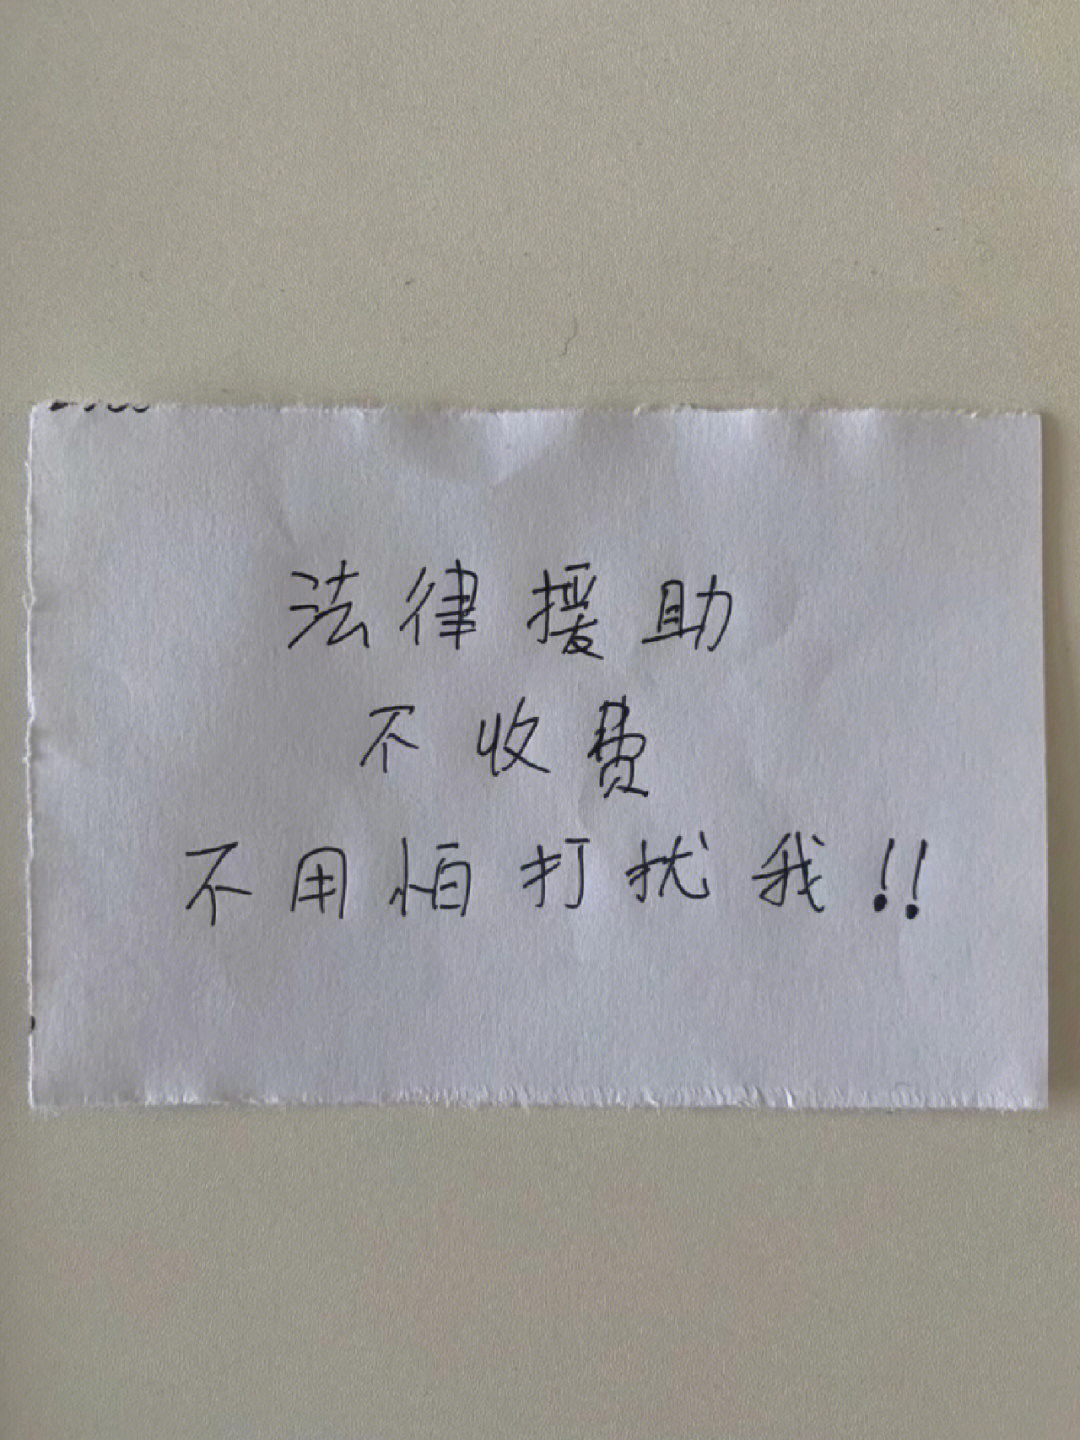 法律援助
不收费
不用怕打扰我!!